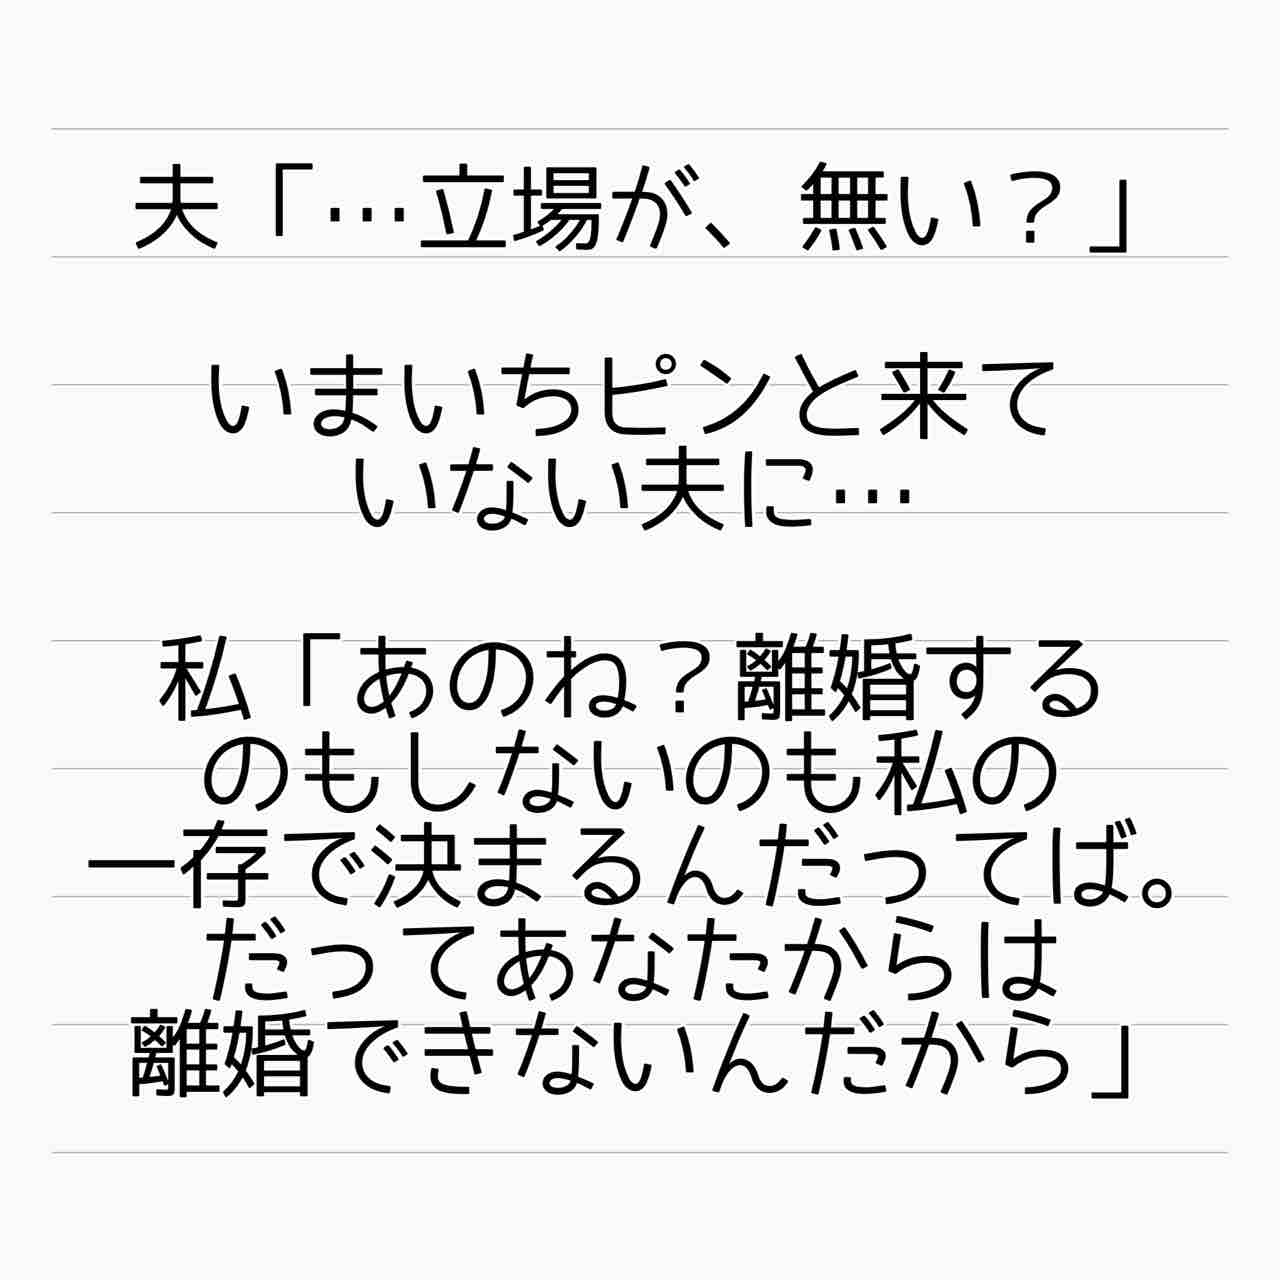 夫「…立場が、無い？」
いまいちピンと来て
いない夫に…
私「あのね？離婚する
のもしないのも私の
一存で決まるんだってば。
だってあなたからは
離婚できないんだから」